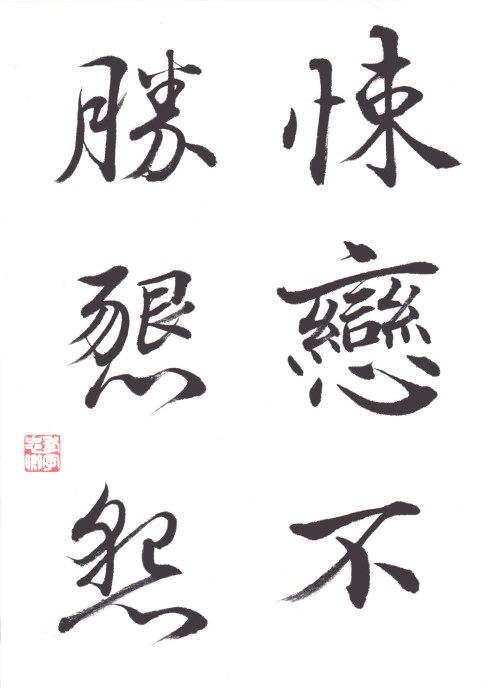 悚戀不
勝懇怨